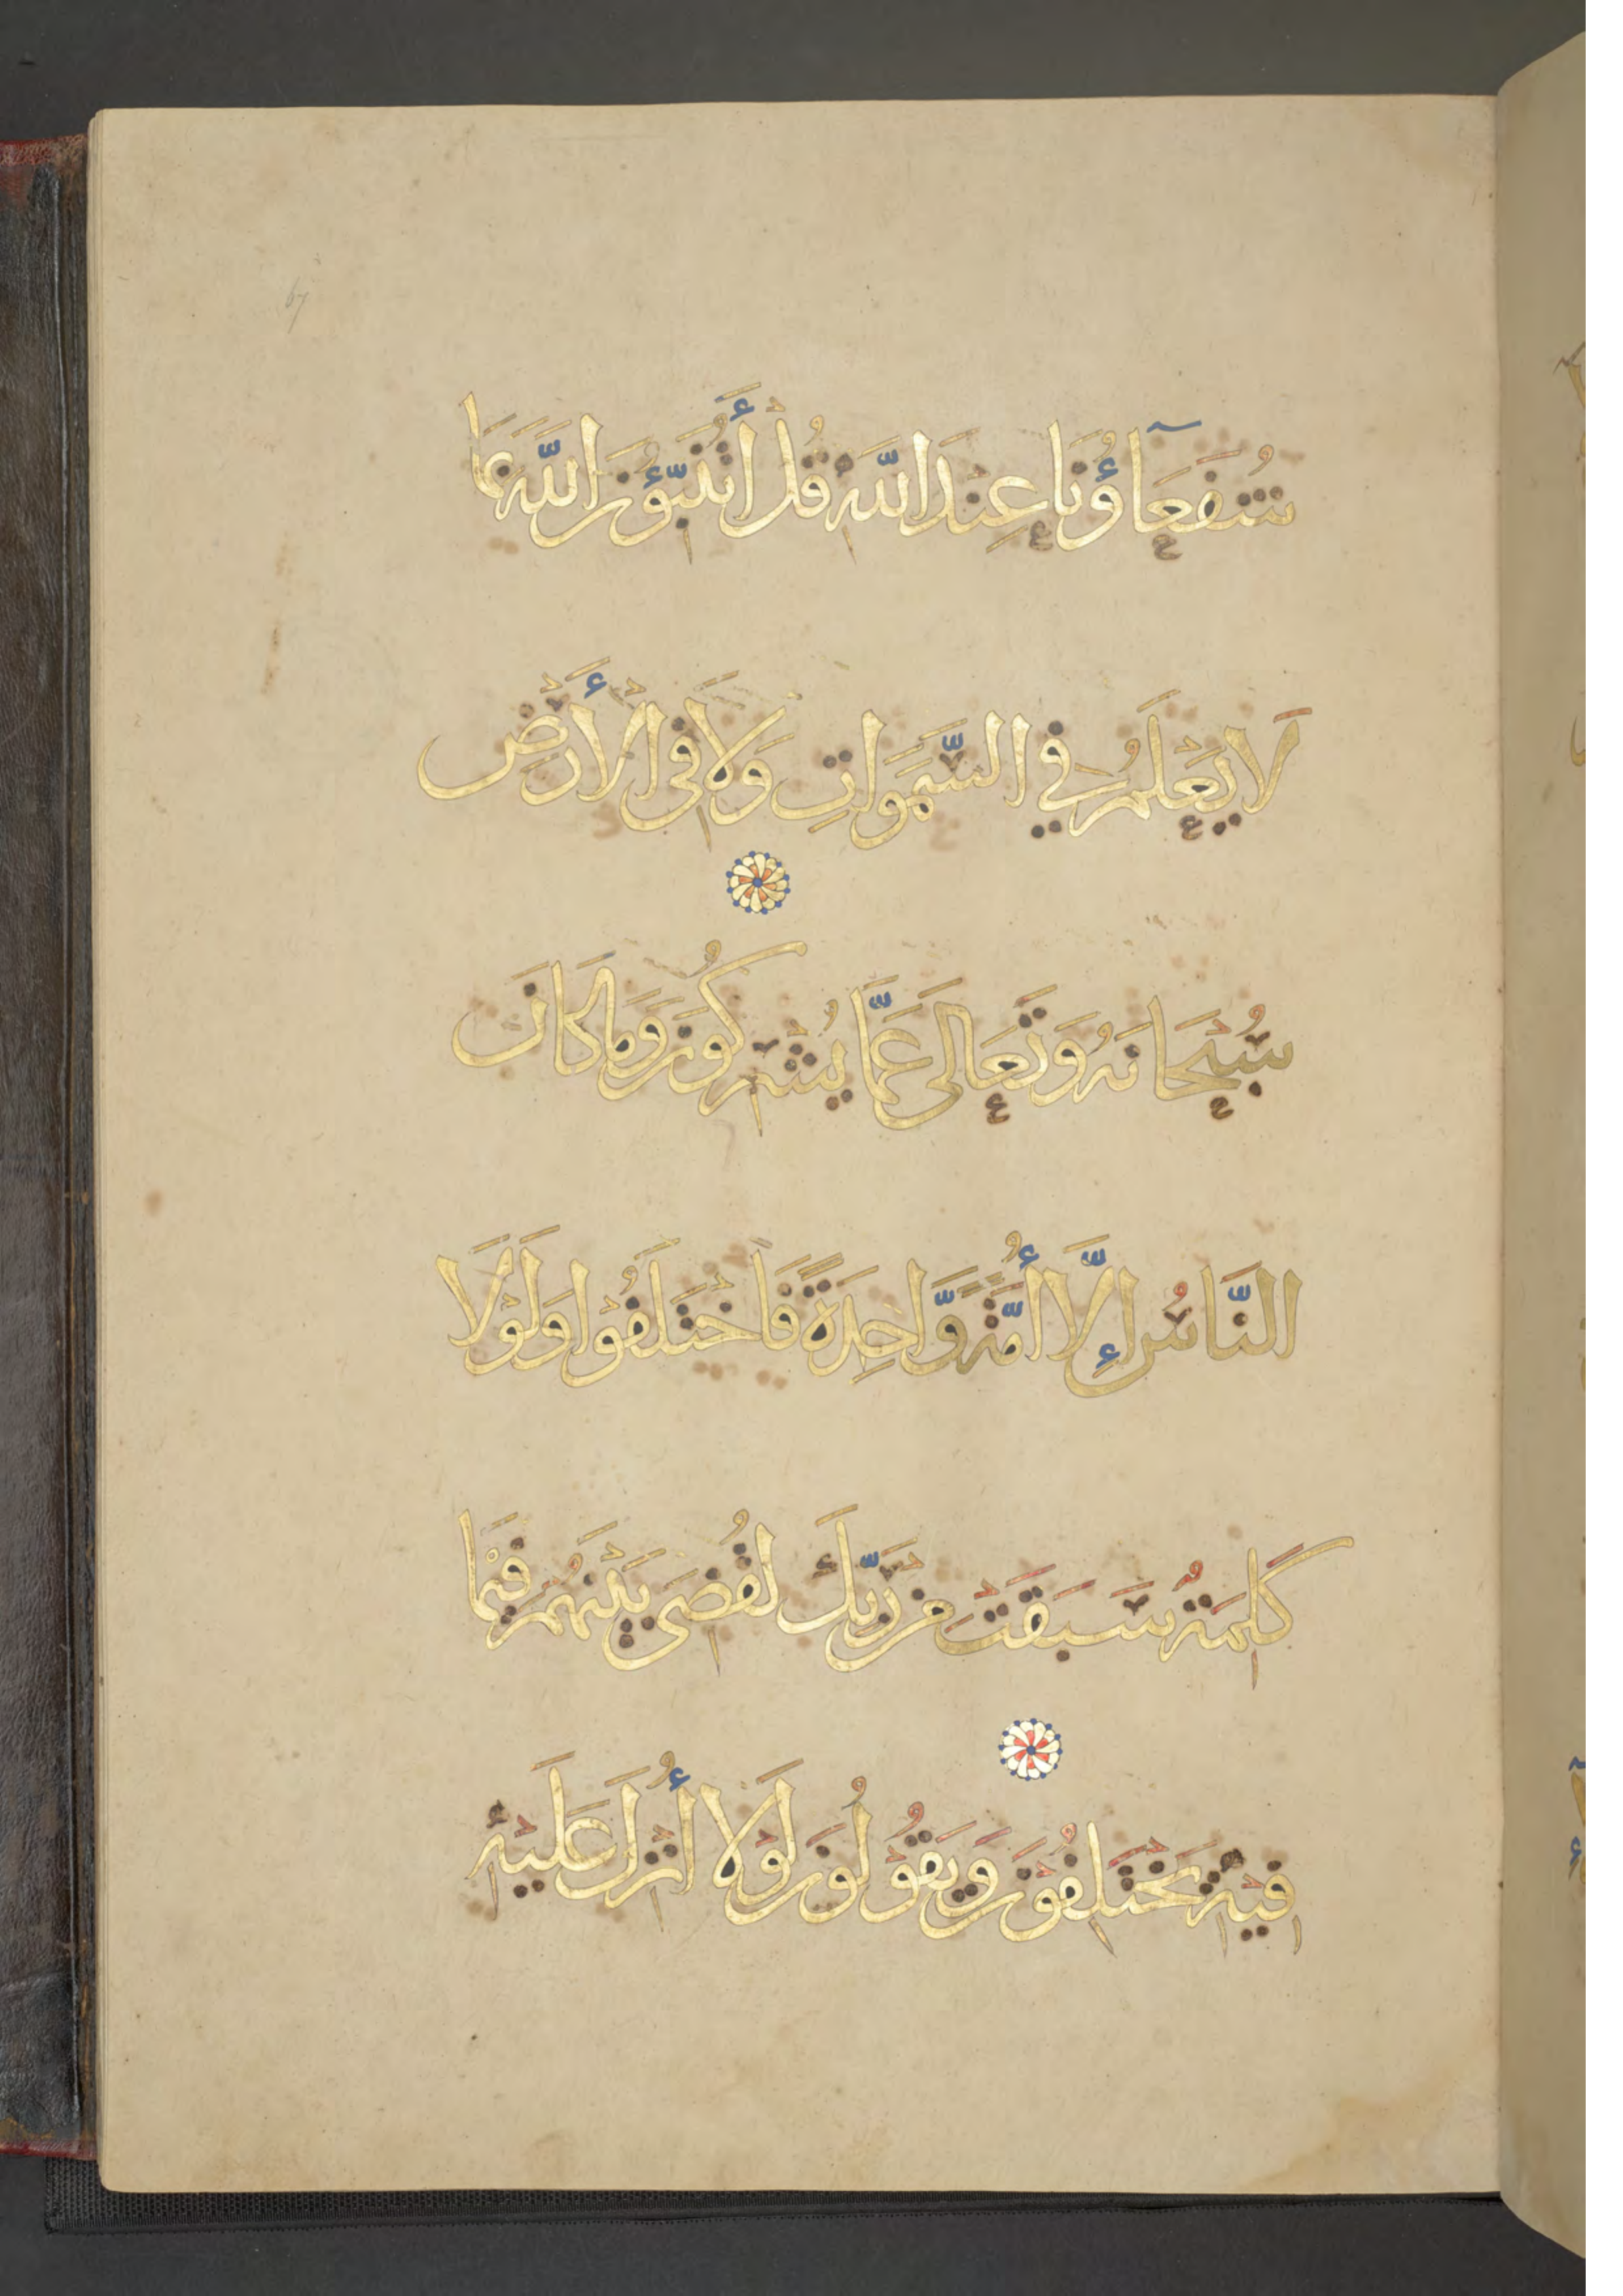 67
شُفَعَآؤُنَا عِنْدَ اللَّهِ قُلْ أَتُنَبِّؤُنَ اللَّهَ بِمَا
لَا يَعْلَمُ فِي السَّمَوَاتِ وَلَا فِي الْأَرْضِ
سُبْحَانَهُ وَتَعَالَى عَمَّا يُشْرِكُونَ وَمَا كَانَ
النَّاسُ إِلَّا أُمَّةً وَّاحِدَةً فَاخْتَلَفُوْا وَلَوْلَا
كَلِمَةٌ سَبَقَتْ مِنْ رَّبِّكَ لَقُضِيَ بَيْنَهُمْ فِيْمَا
فِيْهِ يَخْتَلِفُوْنَ وَيَقُوْلُوْنَ لَوْلَا أُنْزِلَ عَلَيْهِ